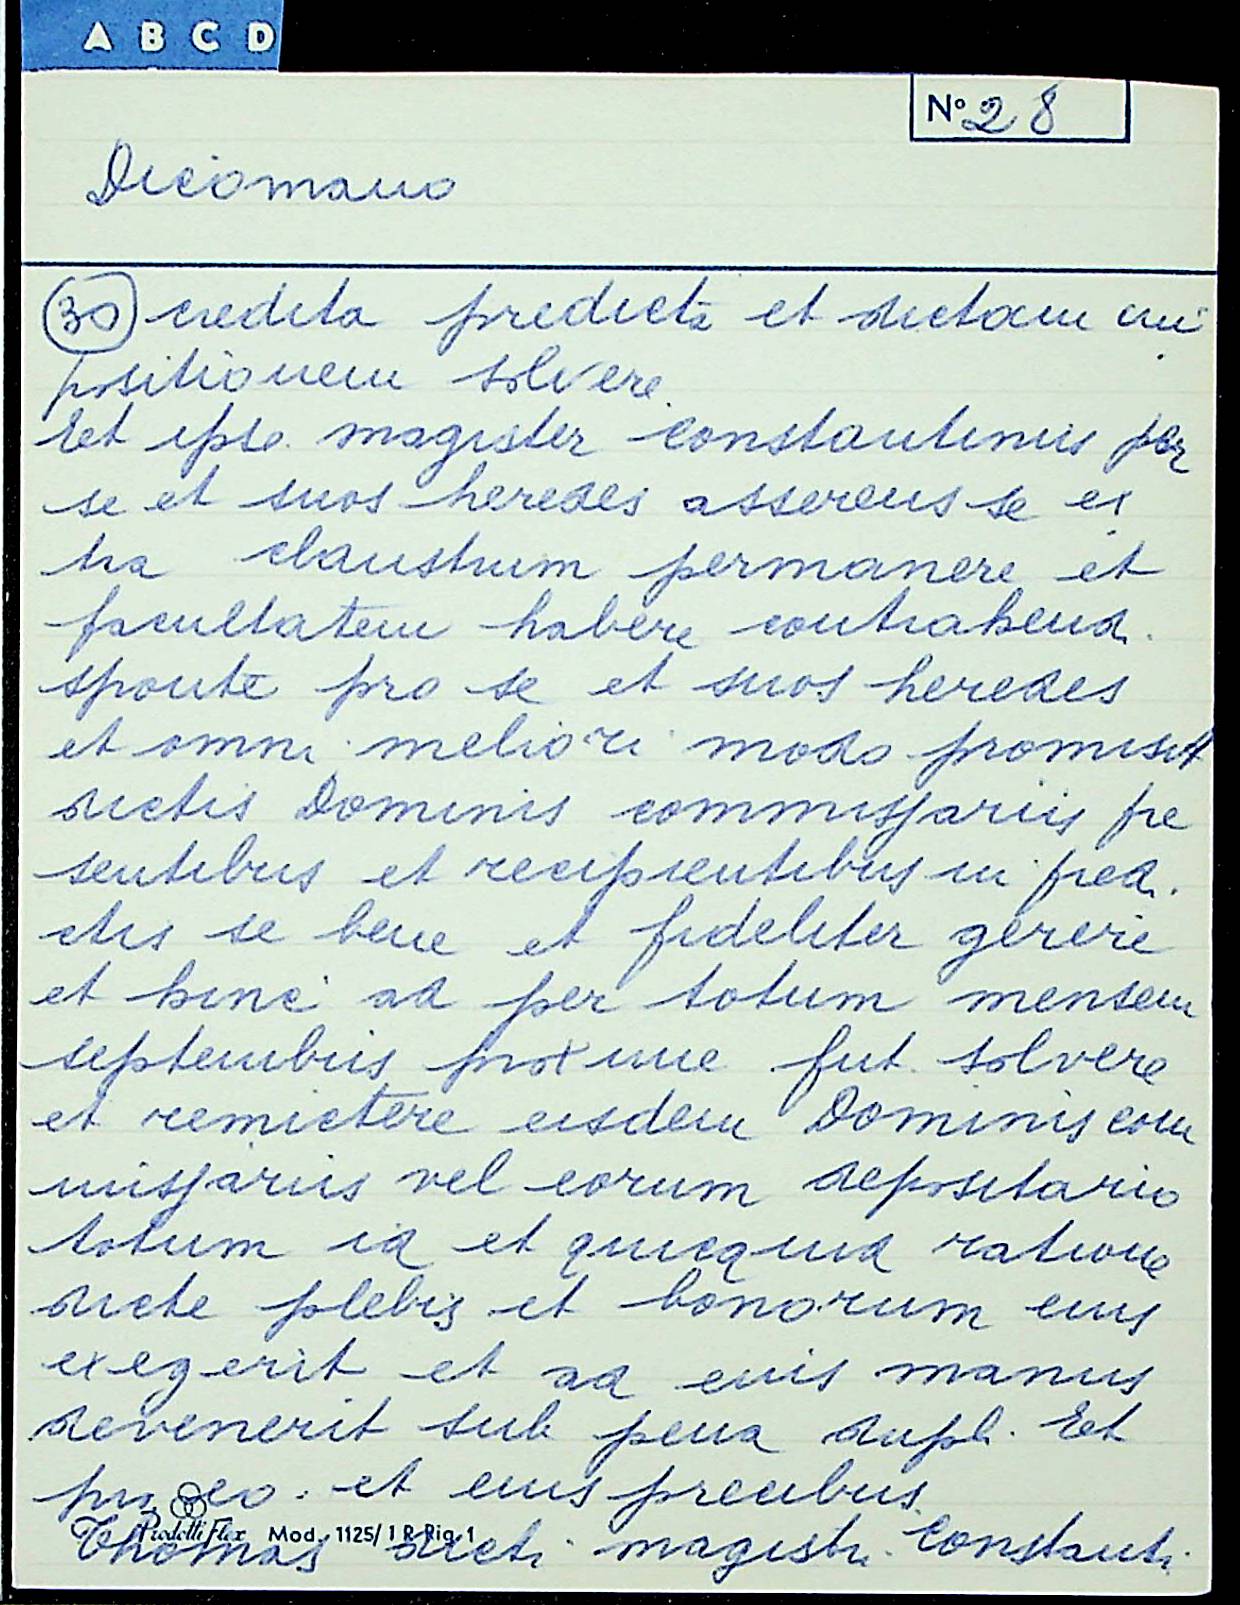 A B C D
Nº 28
Dicomano
30 credita predicta et dictam im
positionem solvere
Et ipse magister Constantinus per
se et suos heredes asserens se ex
tra claustrum permanere et
facultatem habere contrahend.
sponte pro se et suos heredes
et omni meliori modo promisit
dictis Dominis commissariis pre
sentibus et recipientibus in pred.
ctis se bene et fideliter gerere
et hinc ad per totum mensem
septembris proxime fut. solvere
et remictere eisdem Dominis com
missariis vel eorum depositario
totum id et quicquid ratione
dicte plebis et bonorum eius
exegerit et ad eius manus
devenerit sub pena dupl. Et
pro eo. et eius precibus
Thomas dicti magistri Constanti.
Prodotti Flex Mod. 1125/1 R Rig. 1